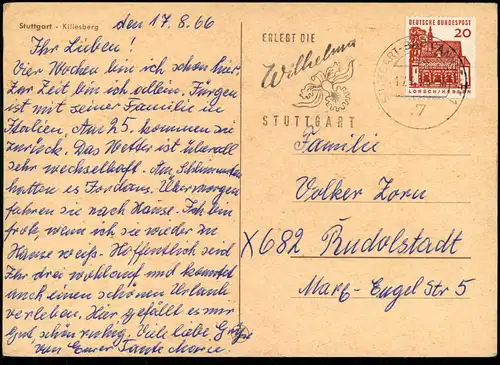 Stuttgart - Killesberg
den 17.8.66
Ihr Lieben!
Vier Wochen bin ich schon hier.
Zur Zeit bin ich allein. Jürgen
ist mit seiner Familie in
Italien. Am 25. kommen sie
zurück. Das Wetter ist überall
sehr wechselhaft. Am Schlimmsten
hatten es Fordans. Übermorgen
fahren sie nach Hause. Ich bin
froh, wenn ich sie wieder zu
Hause weiß. Hoffentlich seid
Ihr drei wohlauf und konntet
auch einen schönen Urlaub
verleben. Hier gefällt es mir
gut, schön ruhig. Viele liebe Grüße
von Eurer Tante
ERLEBT DIE
Wilhelma
STUTTGART
DEUTSCHE BUNDESPOST
20
LORSCH/HESSEN
7
Familie
Volker Zorn
X 682 Rudolstadt
Marx-Engel Str 5